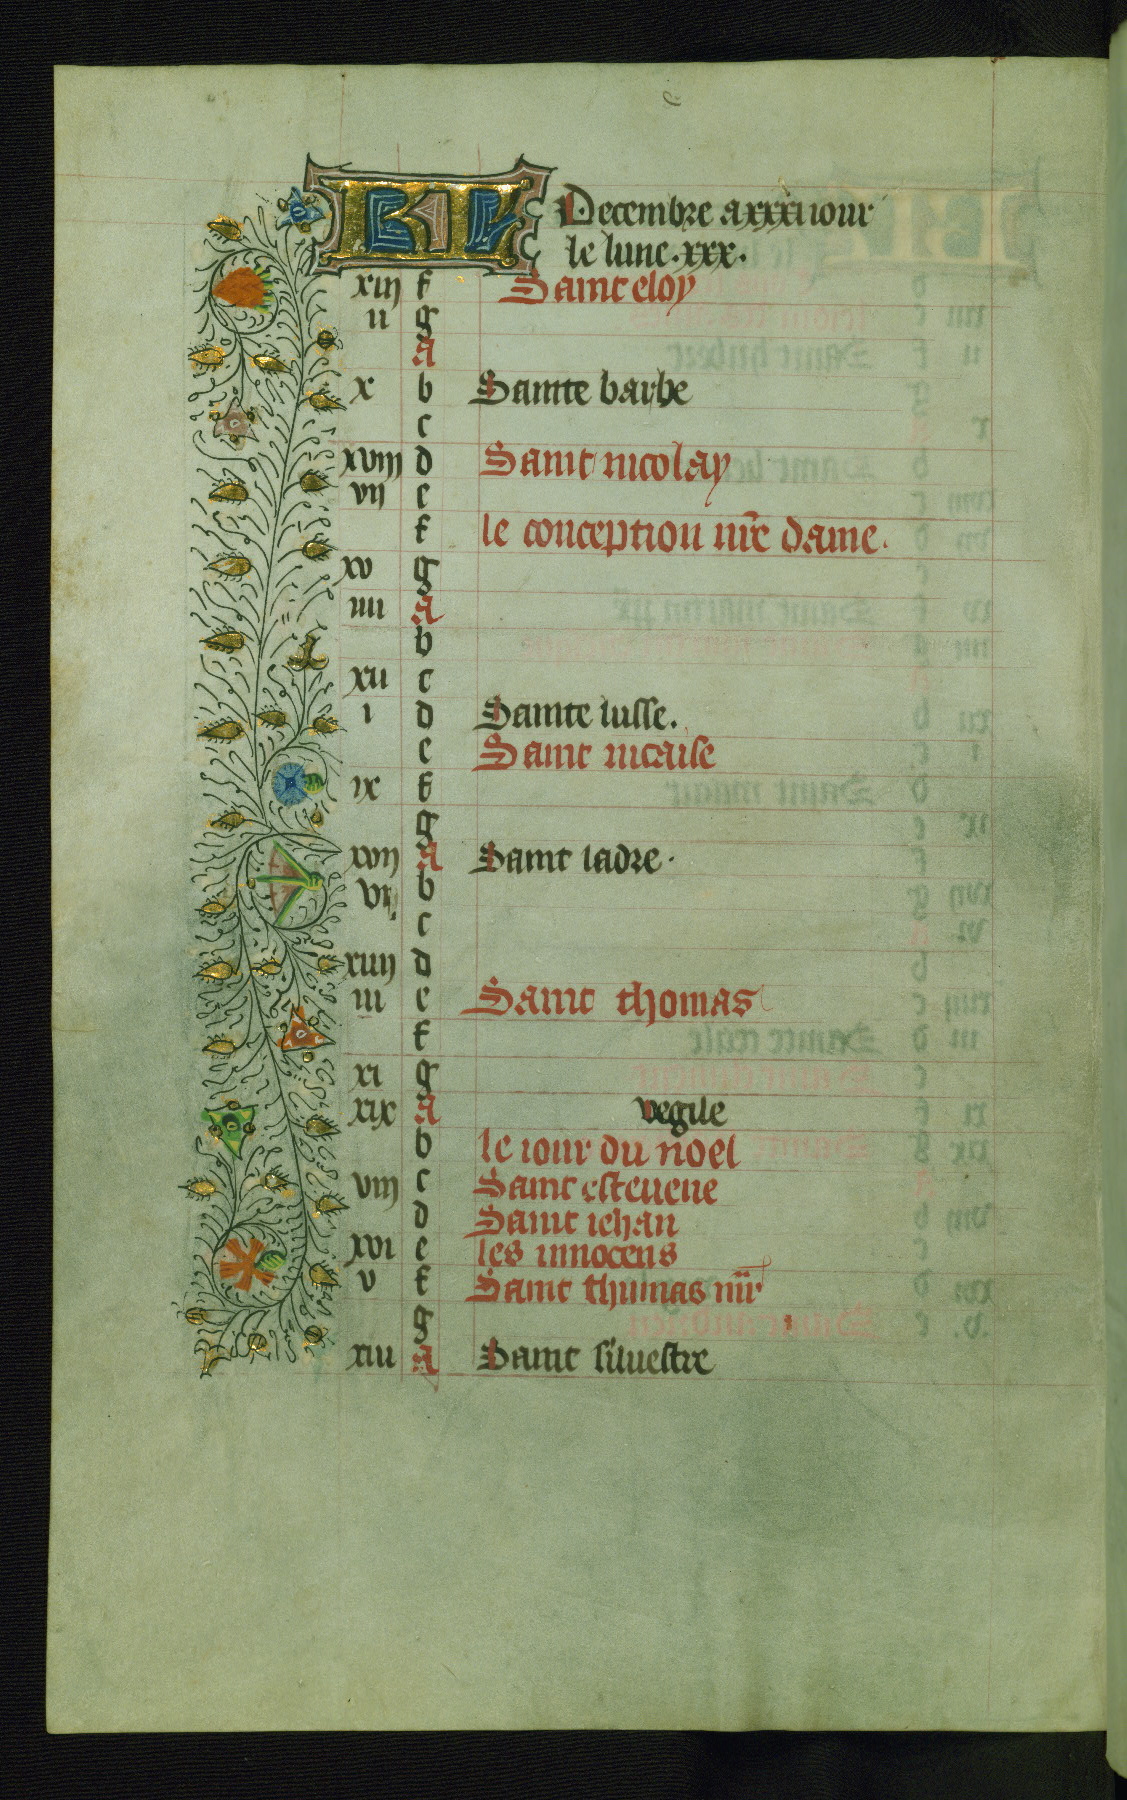 KL Decembre a xxxi iour
le lune .xxx.
xiij f Saint eloy
ij g
A
x b Sainte barbe
c
xviij d Saint nicolay
vij e
f le conception nr̃e dame.
xv g
iiij A
b
xij c
i d Sainte lusse.
e Saint nicaise
ix f
g
xvij A Saint ladre.
vi b
c
xiiij d
iij e Saint thomas
f
xi g
xix A vegile
b le iour du noel
viij c Saint esteuene
d Saint iehan
xvi e les innocens
v f Saint thumas mr̃
g
xiii A Saint siluestre